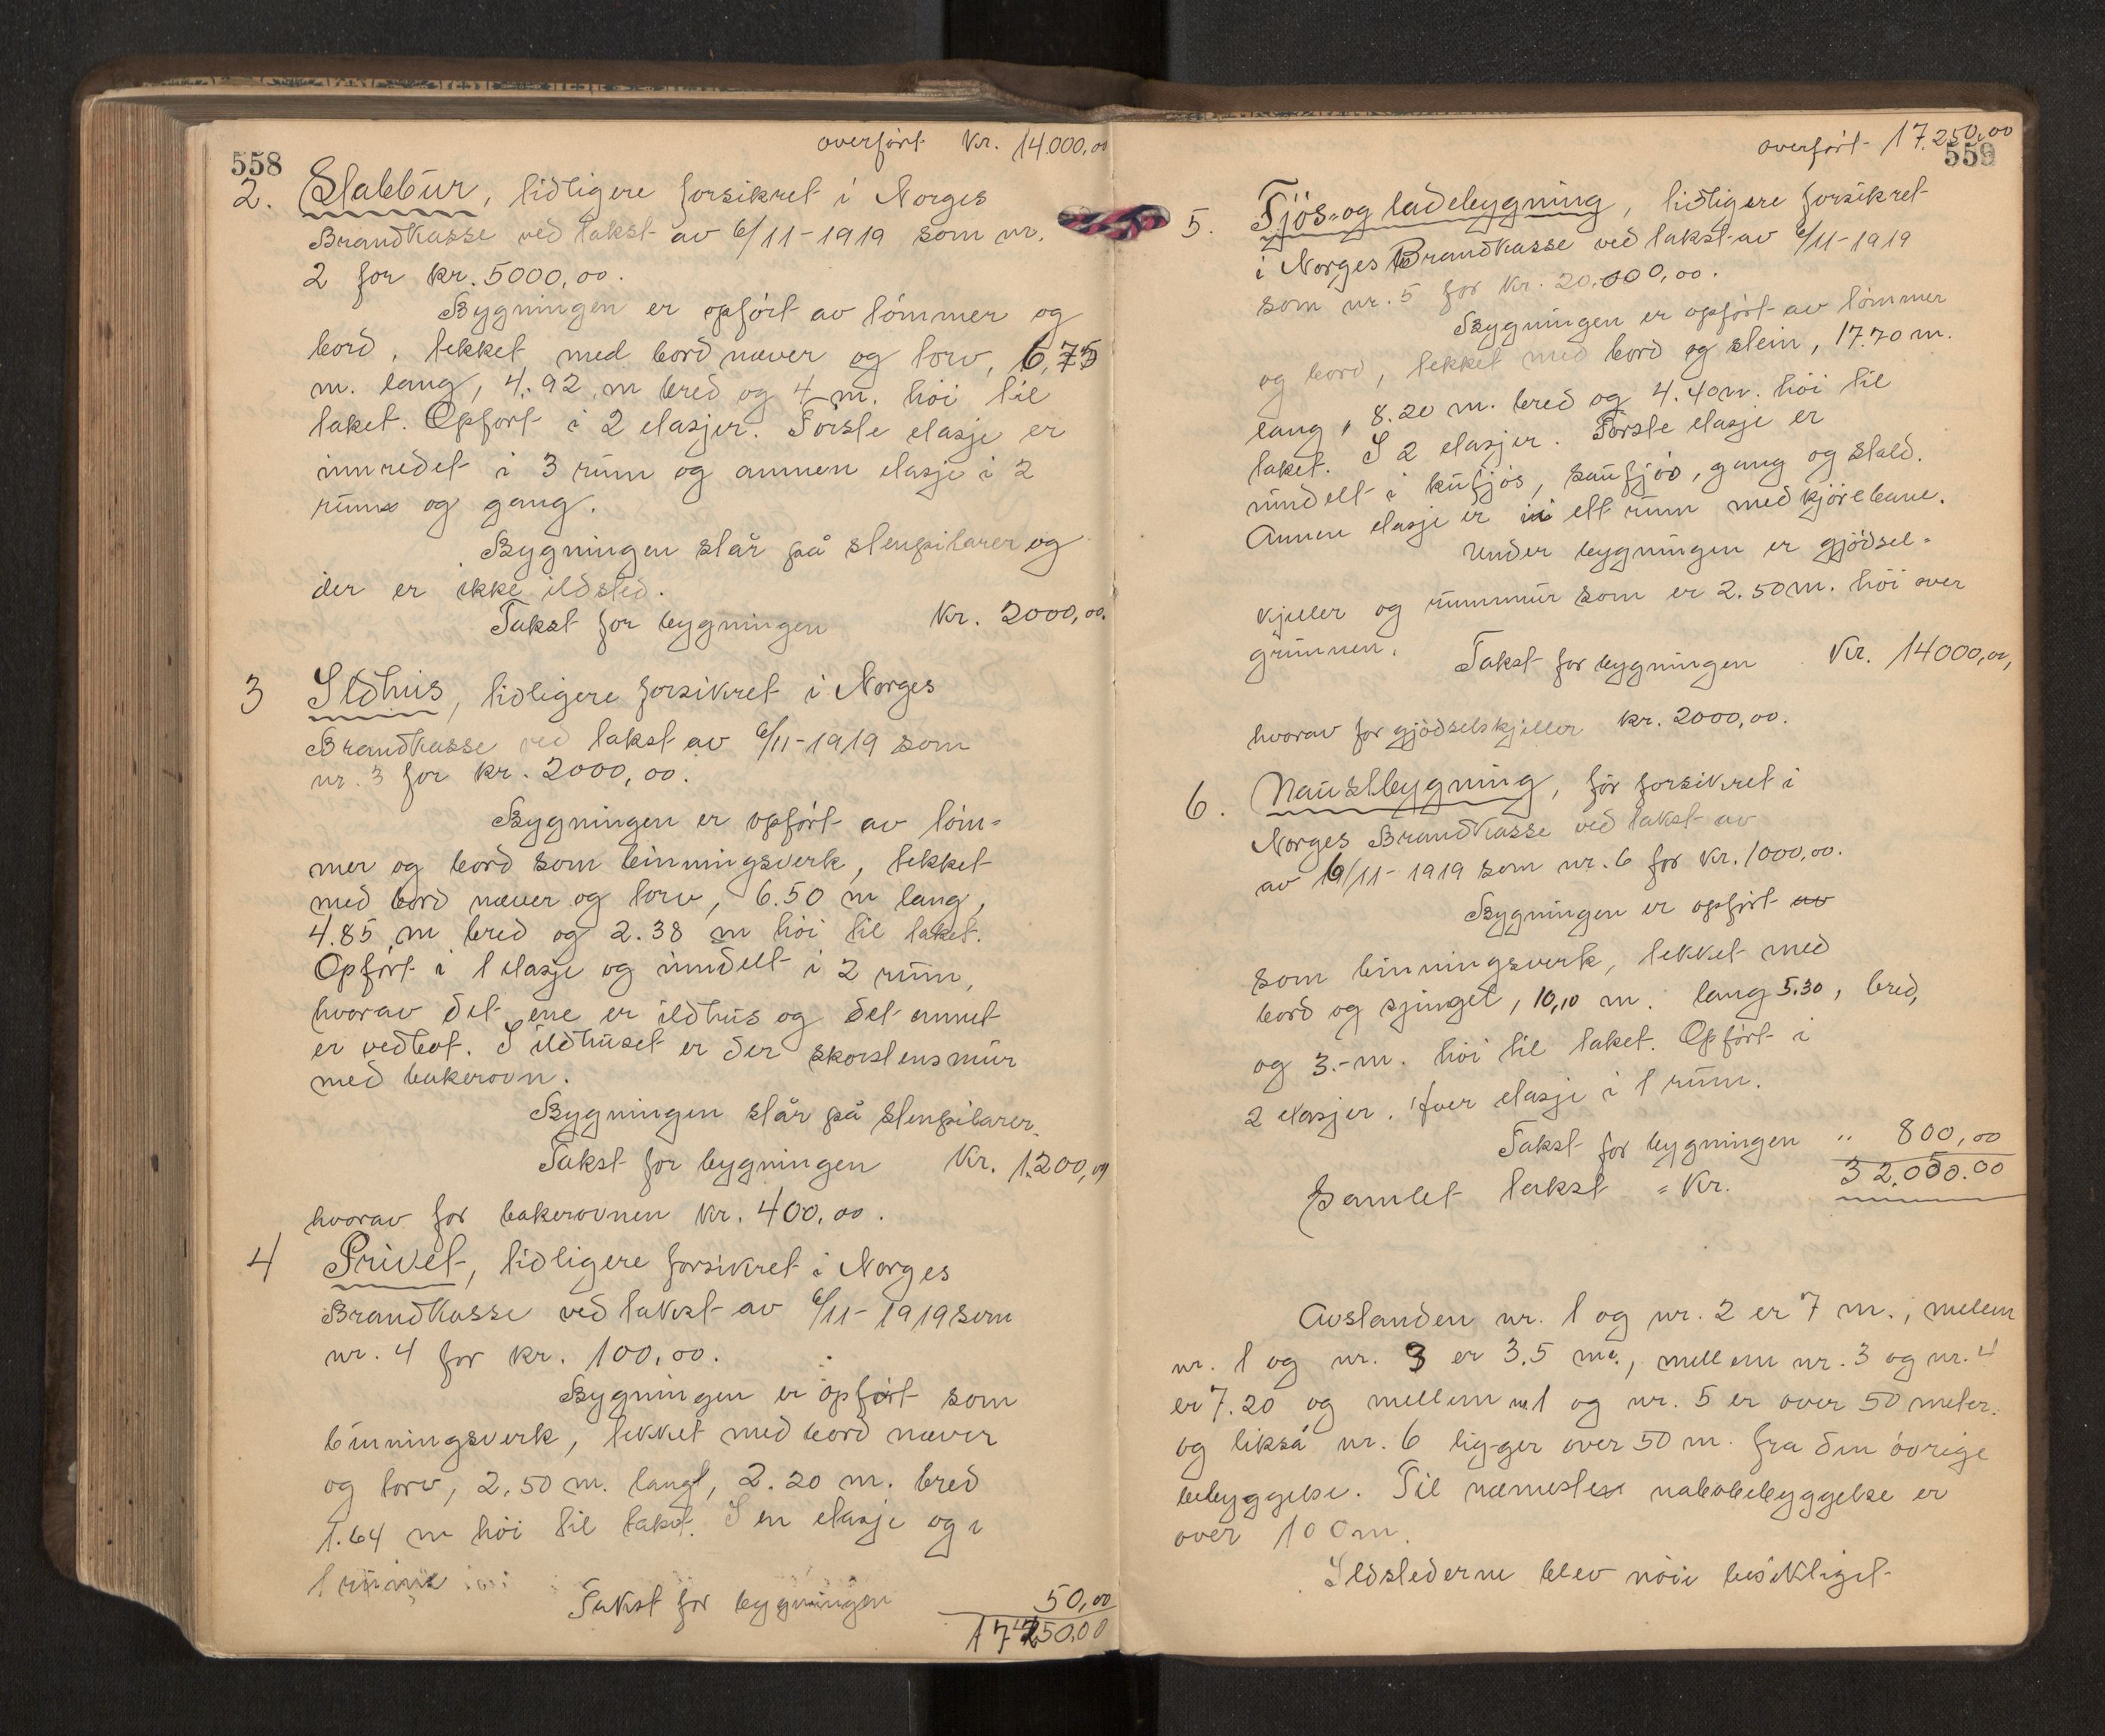 558
overført Kr. 14000,00
2. Stabbur, tidligere forsikret i Norges
Brandkasse ved takst av 6/11-1919 som nr.
2 for kr. 5000,00.
Bygningen er opført av tømmer og
bord, tekket med bord næver og torv, 6,75
m. lang, 4.92 m bred og 4 m. høi til
taket. Opført i 2 etasjer. Første etasje er
innredet i 3 rum og annen etasje i 2
rum og gang.
Bygningen står på stenpilarer og
der er ikke ildsted.
Takst for bygningen Kr. 2000,00.
3 Ildhus, tidligere forsikret i Norges
Brandkasse ved takst av 6/11-1919 som
nr. 3 for kr. 2000,00.
Bygningen er opført av tøm-
mer og bord som binningsverk, tekket
med bord næver og torv, 6.50 m lang,
4.85 m bred og 2.38 m høi til taket.
Opført i 1 etasje og inndelt i 2 rum,
hvorav det ene er ildhus og det annet
er vedbot. I ildhuset er der skorstensmur
med bakerovn.
Bygningen står på stenpilarer.
Takst for bygningen Kr. 1.200,00
hvorav for bakerovnen Kr. 400,00.
4 Privet, tidligere forsikret i Norges
Brandkasse ved takst av 6/11-1919 som
nr. 4 for kr. 100,00.
Bygningen er opført som
binningsverk, tekket med bord næver
og torv, 2.50 m. langt, 2.20 m. bred
1.64 m høi til taket. I en etasje og i
1 rum
Takst for bygningen 50,00
17250,00
overført 17.250,00
559
5. Fjøs- og ladebygning, tidligere forsikret
i Norges Brandkasse ved takst av 6/11-1919
som nr. 5 for kr. 20.000,00.
Bygningen er opført av tømmer
og bord, tekket med bord og stein, 17.70 m.
lang, 8.20 m. bred og 4.40 m. høi til
taket. I 2 etasjer. Første etasje er
inndelt i kufjøs, saufjøs, gang og stald.
Annen etasje er i ett rum med kjørebane.
Under bygningen er gjødsel-
kjeller og rummur som er 2.50 m. høi over
grunnen.
Takst for bygningen Kr. 14000,00,
hvorav for gjødselskjeller kr. 2000,00.
6. Naustbygning, før forsikret i
Norges Brandkasse ved takst av
av 6/11-1919 som nr. 6 for Kr. 1000,00.
Bygningen er opført av
som binningsverk, tekket med
bord og spinget, 10,10 m. lang 5.30, bred,
og 3.- m. høi til taket. Opført i
2 etasjer. Hver etasje i 1 rum.
Takst for bygningen " 800,00
Samlet takst = Kr. 32.050.00
Avstanden nr. 1 og nr. 2 er 7 m., melem
nr. 1 og nr. 3 er 3.5 m., mellem nr. 3 og nr. 4
er 7.20 og mellem nr 1 og nr. 5 er over 50 meter.
og likså nr. 6 ligger over 50 m. fra den øvrige
bebyggelse. Til nærmeste nabobebyggelse er
over 100 m.
Ildstederne blev nøie besiktiget